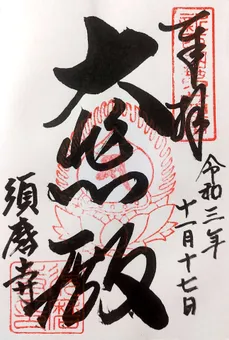 奉拝
令和三年
十一月十七日
大悲殿
須磨寺